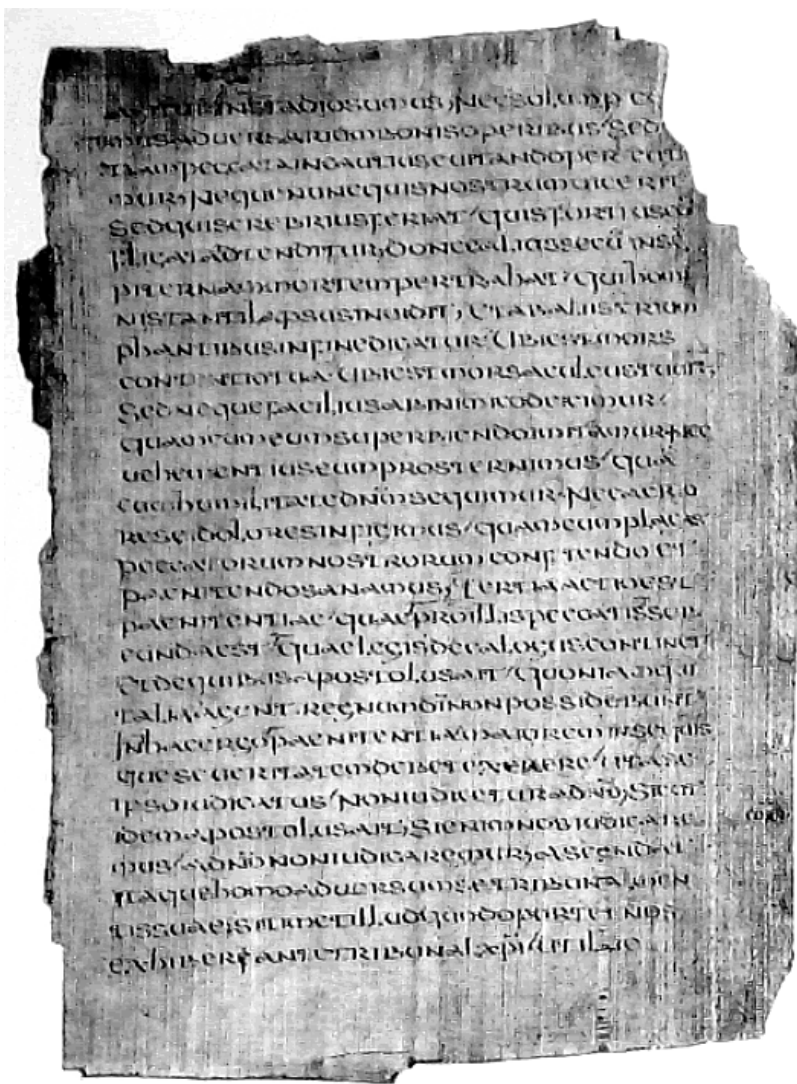 INSTADIOSUMUS; NECSOLUMP
IMUSADUERSARIUMBONISOPERIBUS/ SED
ETIAMPECCATAINCAUTIUSEUITANDOPERCUTI
MUR; NEQUENUNCQUISNOSTRUMUICERIT
SEDQUISCREBRIUSFERIAT/ QUISFORTIUSCO̅
FLIGATADTENDITUR; DONECALIOSSECU̅INSE
PITERNAMMORTEMPERTRAHAT/ QUIHOMI
NISTANTILAPSUSINUIDIT; ETABALIISTRIUM
PHANTIBUSINFINEDICATUR/ UBIESTMORS
CONTENTIOTUA/ UBIESTMORSACULEUSTUUS;
SEDNEQUEFACILIUSABINIMICODEICIMUR/
QUAMCUMEUMSUPERBIENDOIMITAMUR/ NEC
UEHEMENTIUSEUMPROSTERNIMUS/ QUA̅
CUMHUMILITATEDN̅MSEQUIMUR/ NECACRIO
RESEIDOLORESINFIGIMUS/ QUAMCUMPLAGAS
PECCATORUMNOSTRORUMCONFITENDOET
PAENITENDOSANAMUS; TERTIAACTIOEST
PAENITENTIAE/ QUAEPROILLISPECCATISSUB
EUNDAEST/ QUAELEGISDECALOGUSCONTINET
ETDEQUIBUSAPOSTOLUSAIT/ QUONIAMQUI
TALIAAGUNT/ REGNUMDI̅NONPOSSIDEBUNT
INHACERGOPAENITENTIAMAIOREMINSEQUIS
QUESEUERITATEMDEBETEXERCERE/ UTASE
IPSOIUDICATUS/ NONIUDICETURADN̅O; SICUT
IDEMAPOSTOLUSAIT; SIENIMNOSIUDICARE
MUS/ ADN̅ONONIUDICAREMUR; ASCENDAT
ITAQUEHOMOADUERSUMSETRIBUNALMEN
TISSUAE; SITIMETILLUDQUODOPORTETNOS
EXHIBERIANTETRIBUNALXP̅I/ UTILLIC